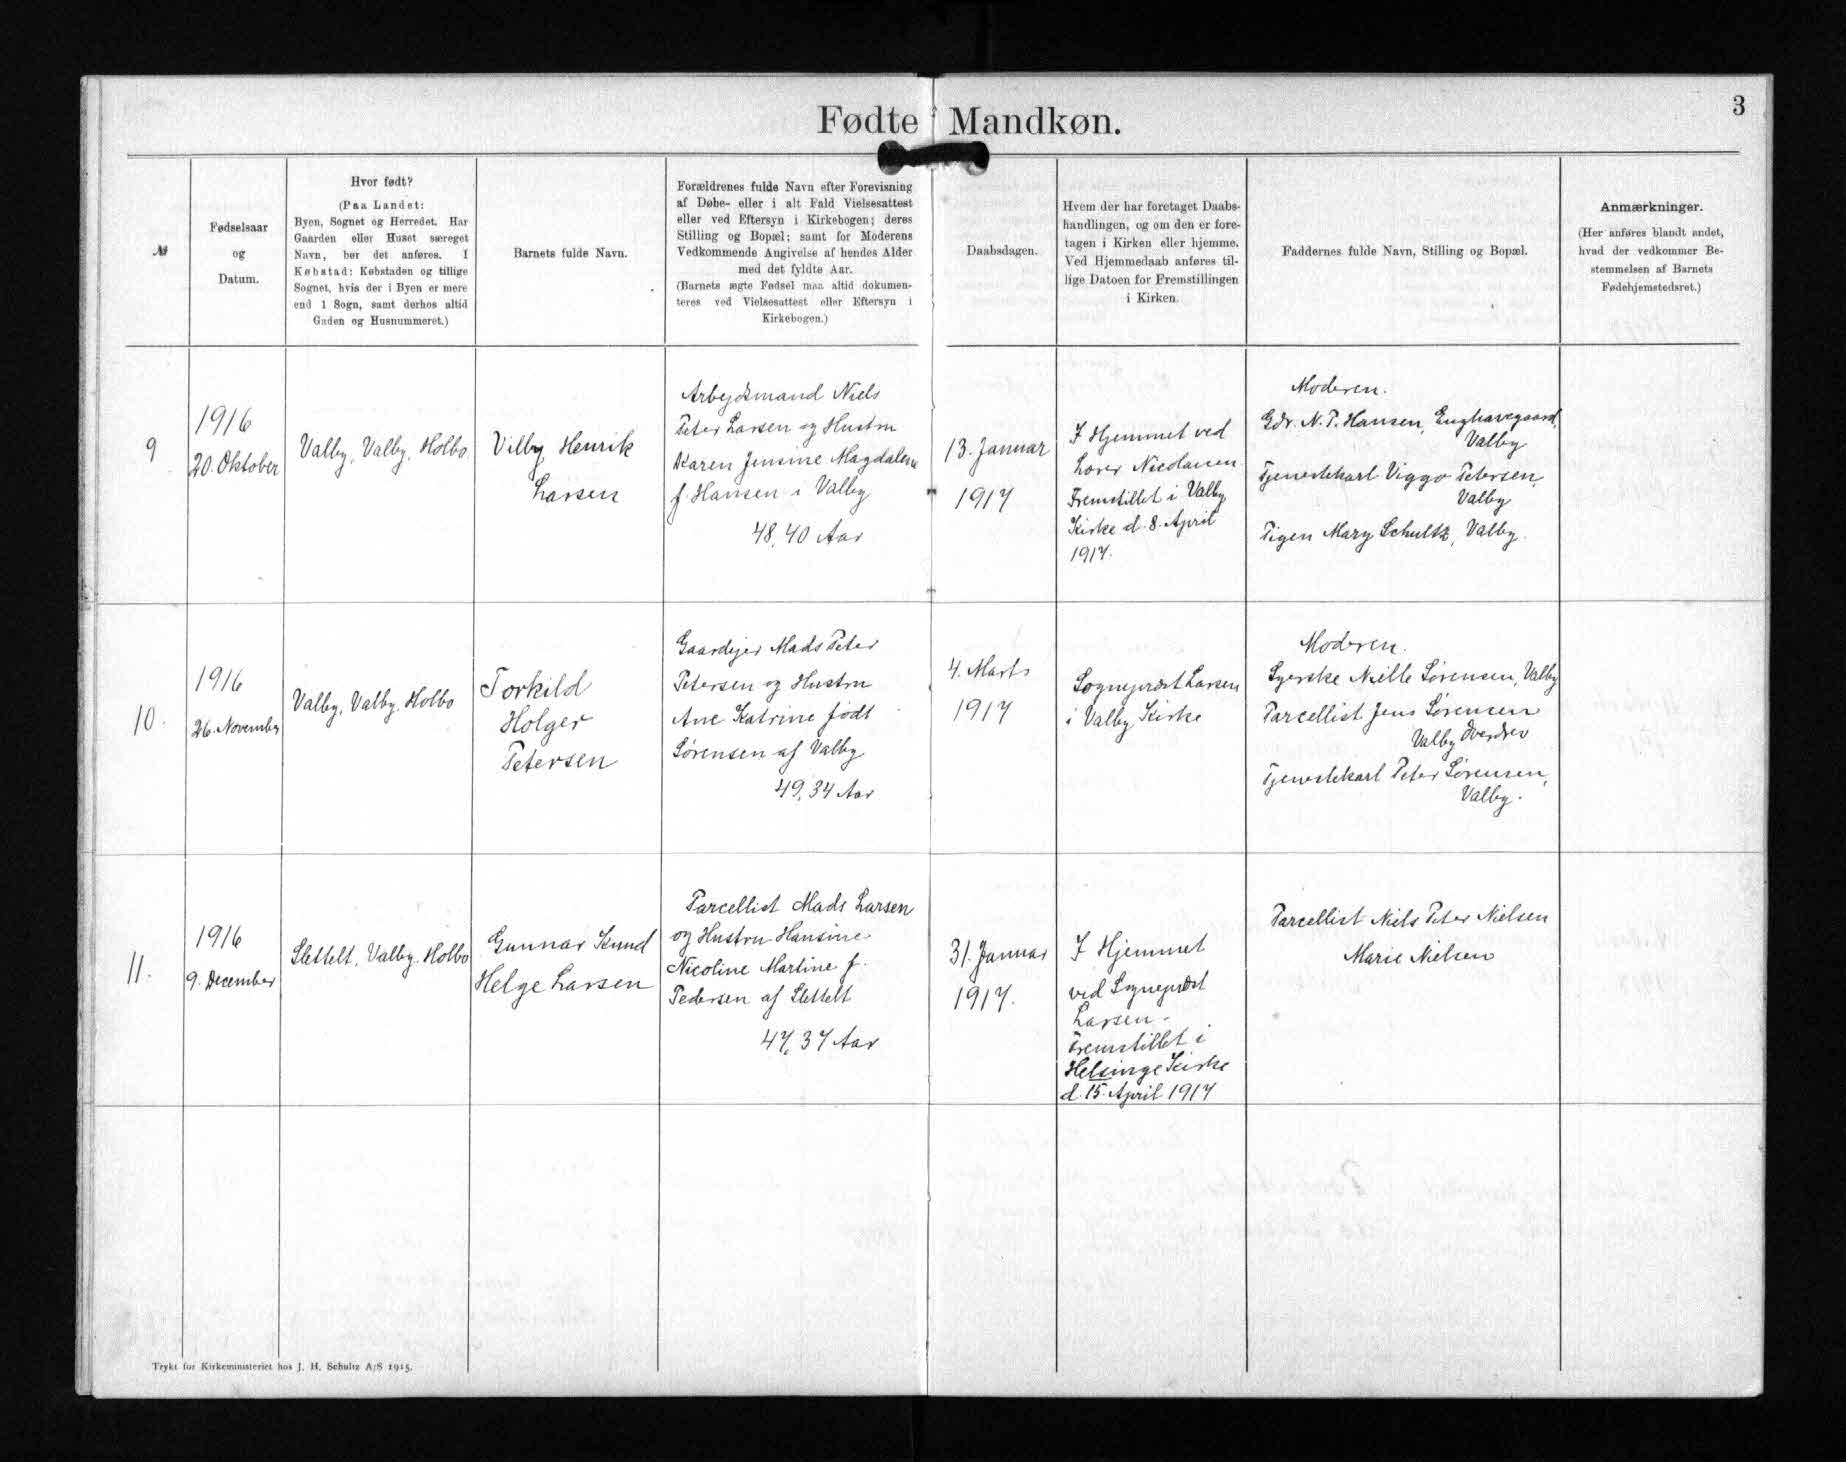 Fødte Mandkøn.
3
№
Fødselsaar
og
Datum.
Hvor født?
(Paa Landet:
Byen, Sognet og Herredet. Har
Gaarden eller Huset særeget
Navn, bør det anføres. I
Købstad: Købstaden og tillige
Sognet, hvis der i Byen er mere
end 1 Sogn, samt derhos altid
Gaden og Husnummeret.)
Barnets fulde Navn.
Forældrenes fulde Navn efter Forevisning
af Døbe- eller i alt Fald Vielsesattest
eller ved Eftersyn i Kirkebogen; deres
Stilling og Bopæl; samt for Moderens
Vedkommende Angivelse af hendes Alder
med det fyldte Aar.
(Barnets ægte Fødsel maa altid dokumen-
teres ved Vielsesattest eller Eftersyn i
Kirkebogen.)
Daabsdagen.
Hvem der har foretaget Daabs-
handlingen, og om den er fore-
tagen i Kirken eller hjemme.
Ved Hjemmedaab anføres til-
lige Datoen for Fremstillingen
i Kirken.
Faddernes fulde Navn, Stilling og Bopæl.
Anmærkninger.
(Her anføres blandt andet,
hvad der vedkommer Be-
stemmelsen af Barnets
Fødehjemstedsret.)
9
1916
20. Oktober
Valby, Valby, Holbo
Vilby Henrik
Larsen
Arbejdsmand Niels
Peter Larsen og Hustru
Karen Jensine Magdalene
f. Hansen i Valby
48, 40 Aar
13. Januar
1917
I Hjemmet ved
Lærer Nicolaisen
Fremstillet i Valby
Kirke d. 8. April
1917.
Moderen.
Gdr. N. P. Hansen, Enghavegaard,
Valby
Tjenestekarl Viggo Petersen,
Valby
Pigen Mary Schultz, Valby.
10.
1916
26. November
Valby, Valby. Holbo
Torkild
Holger
Petersen
Gaardejer Mads Peter
Petersen og Hustru
Ane Katrine født
Sørensen af Valby
49, 34 Aar
4. Marts
1917
Sognepræst Larsen
i Valby Kirke
Moderen.
Syerske Nielle Sørensen, Valby
Parcellist Jens Sørensen
Valby Overdrev
Tjenestekarl Peter Sørensen,
Valby.
11.
1916
9. December
Slettelt, Valby. Holbo
Gunnar Knud
Helge Larsen
Parcellist Mads Larsen
og Hustru Hansine
Nicoline Martine f.
Pedersen af Slettelt
47, 37 Aar
31. Januar
1917.
I Hjemmet
ved Sognepræst
Larsen.
Fremstillet i
Helsinge Kirke
d. 15. April 1917
Parcellist Niels Peter Nielsen
Marie Nielsen
Trykt for Kirkeministeriet hos J. H. Schultz A/S 1915.